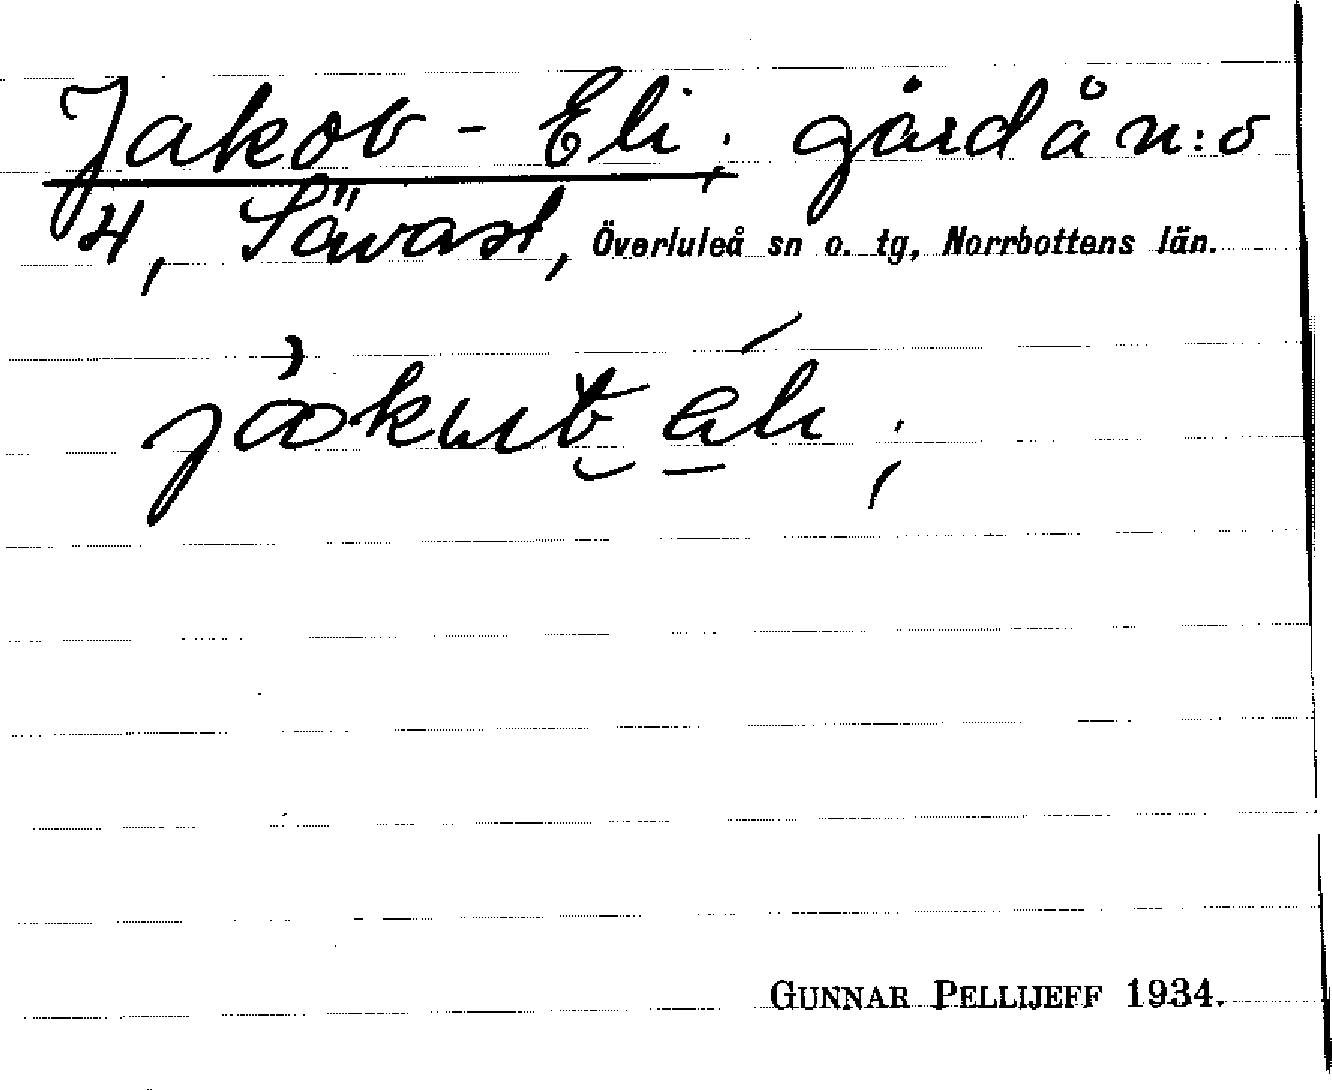 Jakob-Eli; gård å n:o
4, Sävast, Överluleå sn o. tg, Norrbottens län.
GUNNAR PELLIJEFF 1934.